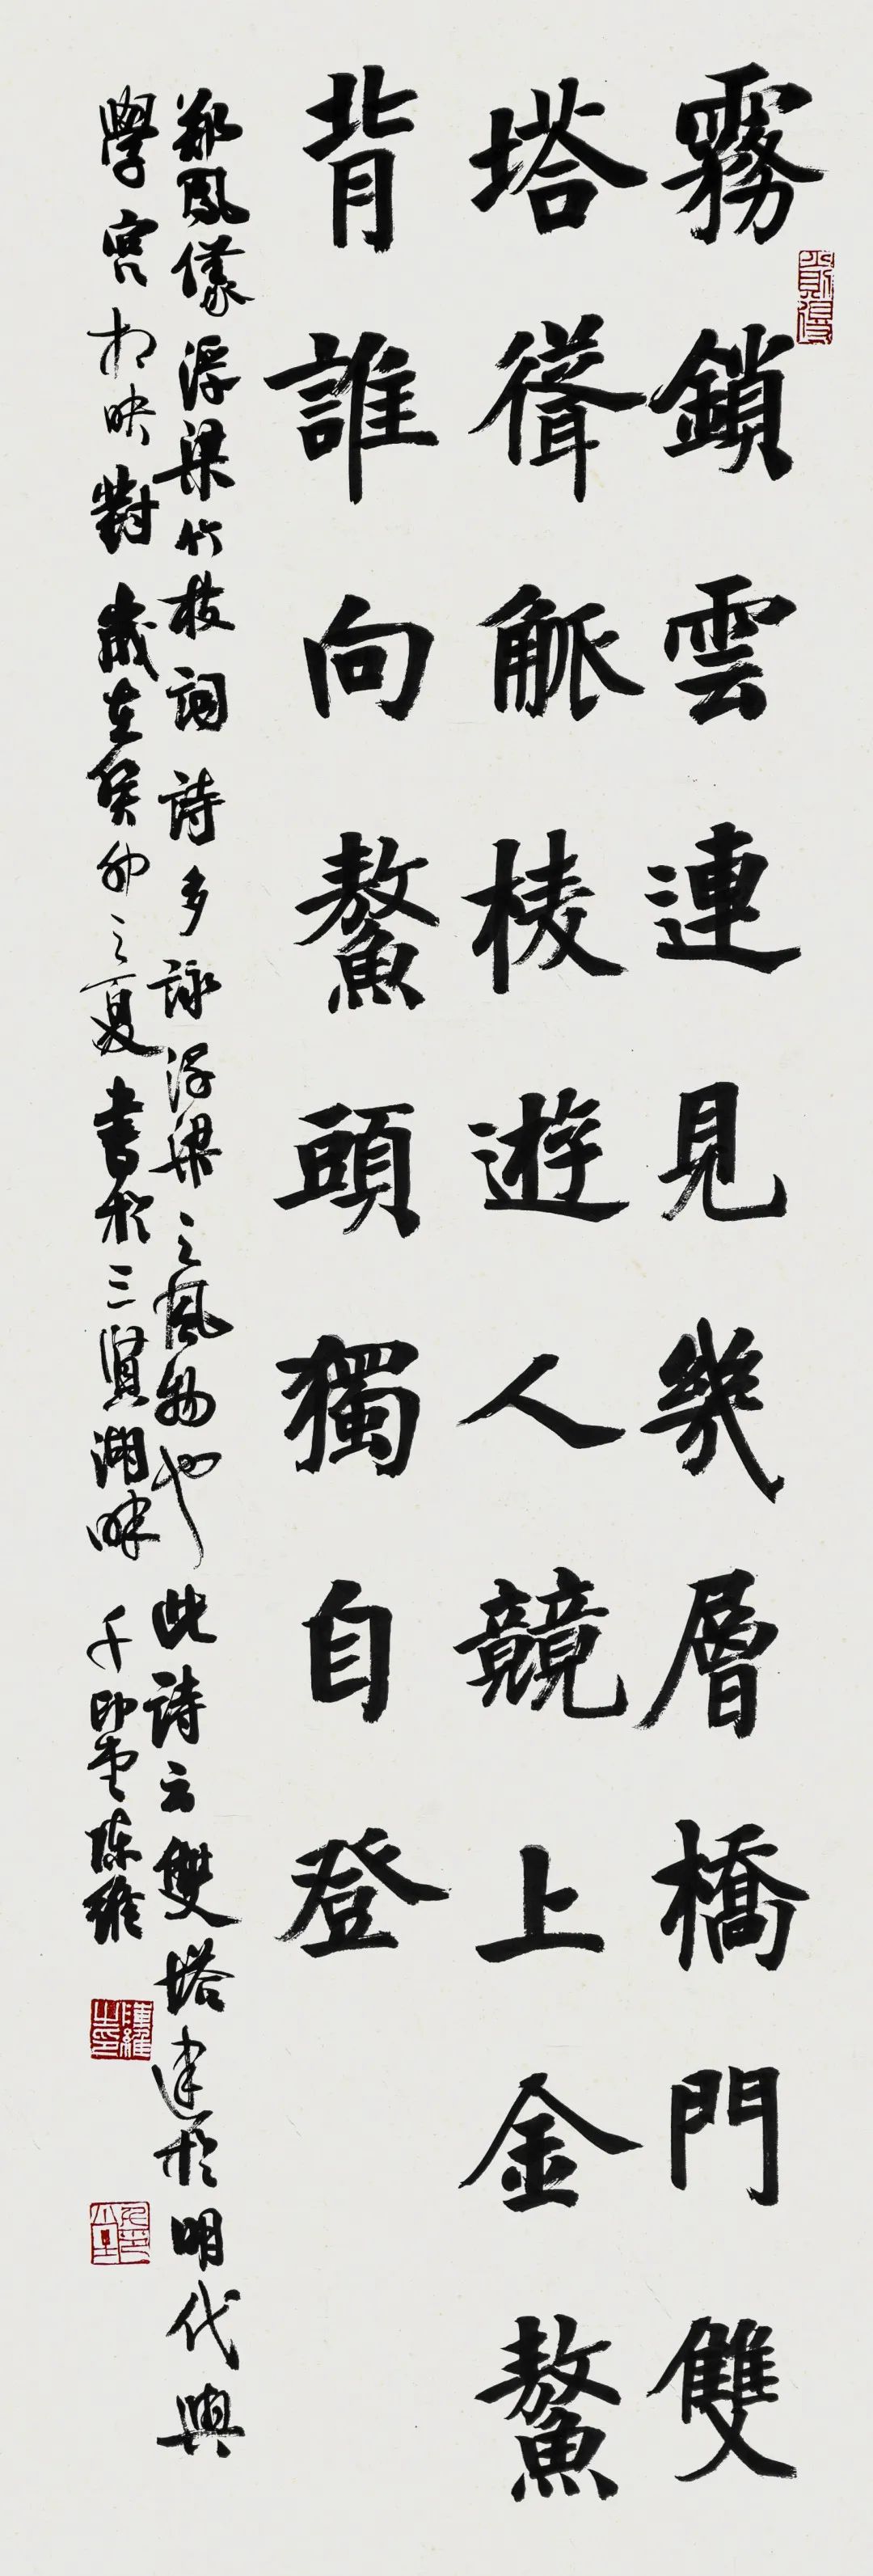 霧鎖雲連見幾層橋門雙
塔聳觚棱遊人競上金鰲
背誰向鰲頭獨自登
鄭鳳儀浮梁竹枝詞詩多詠浮梁之風物也此詩云雙塔建於明代與
學宮相映對歲在癸卯之夏書於三賢湖畔千印堂陳維
陳維之印